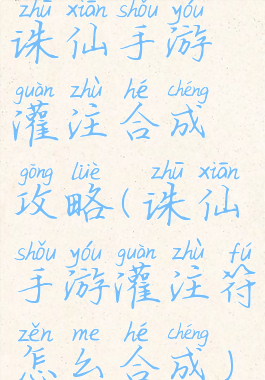 zhū xiān shǒu yóu
诛仙手游
guàn zhù hé chéng
灌注合成
gōng lüè zhū xiān
攻略(诛仙
shǒu yóu guàn zhù fú
手游灌注符
zěn me hé chéng
怎么合成)